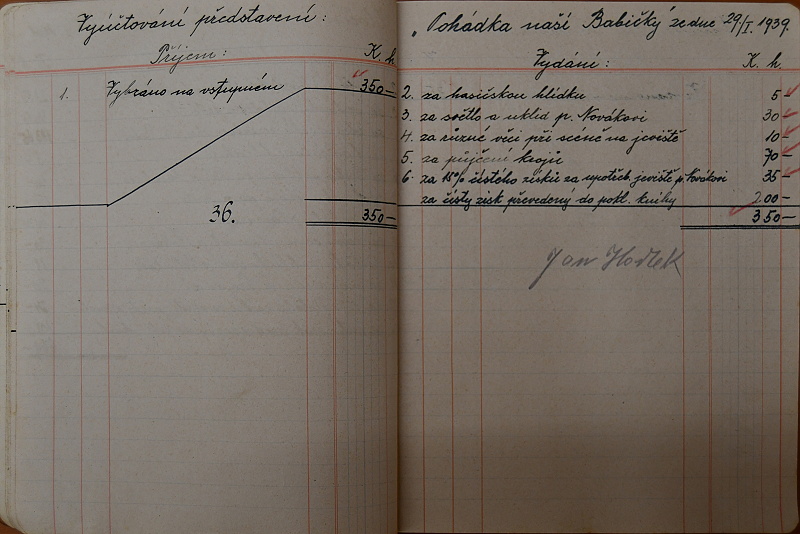 Vyúčtování představení:
Příjem: K. h
1. Vybráno na vstupném 350–
36.
350–
„Pohádka naší Babičky" ze dne 29/I. 1939.
Vydání: K. h.
2. za hasičskou hlídku 5–
3. za světlo a úklid p. Novákovi 30–
4. za různé věci při scéně na jeviště 10–
5. za půjčení krojů 70–
6. za 15% čistého zisku za upotřeb. jeviště p. Novákovi 35–
za čistý zisk převedený do pokl. knihy 200–
350–
Jan